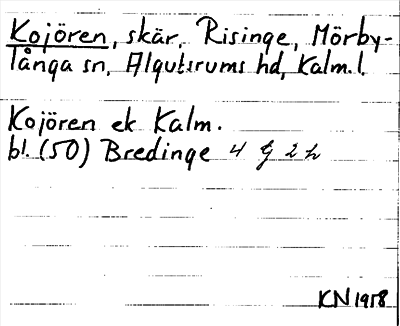 Kojören, skär, Risinge, Mörby-
långa sn, Algutsrums hd, Kalm.l.
Kojören ek Kalm.
bl. (50) Bredinge 4 G 2 h
KN 1958